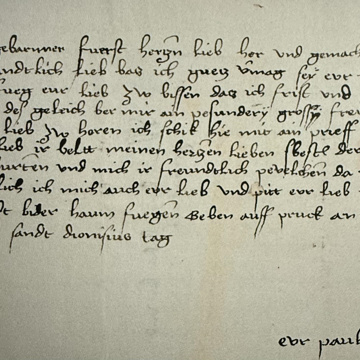 gebarmer fuerst herczn lieb her und gemach
andtlich lieb was ich guecz vmag sey eur
fueg eur lieb zw wissen das ich frisch und
des geleich ber mir ain pesundery grossy freu
lieb zw horen ich schik hie mit an prieff
lieb ir belt meinen herczen lieben swester
urten und mich ir freundtlich pevelchen da
lich ich mich auch eur lieb und pitt eur lieb
t bider haim fuegen geben auff pruck an
sandt dionisius tag
eur paul